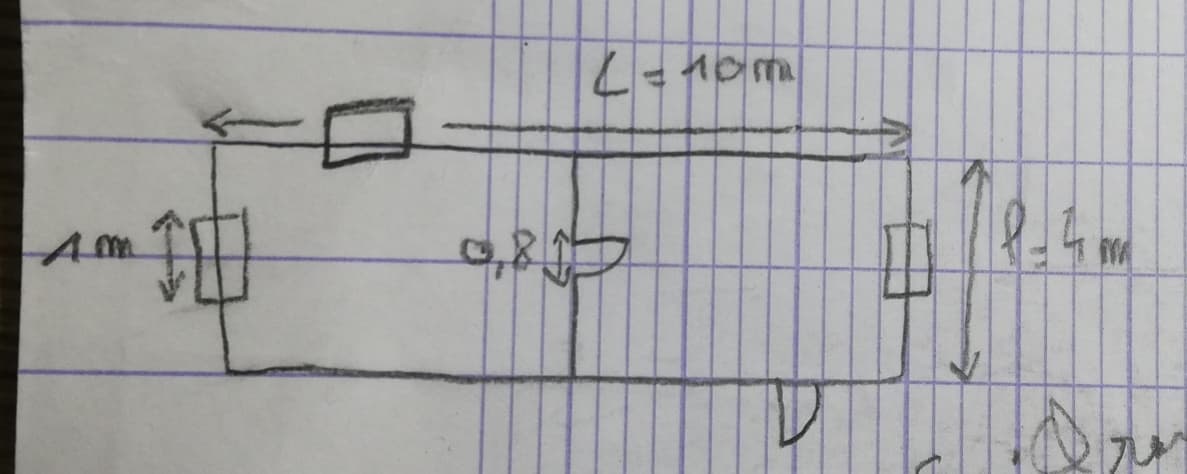 L = 10 m
1 m
0,8
l = 4 m